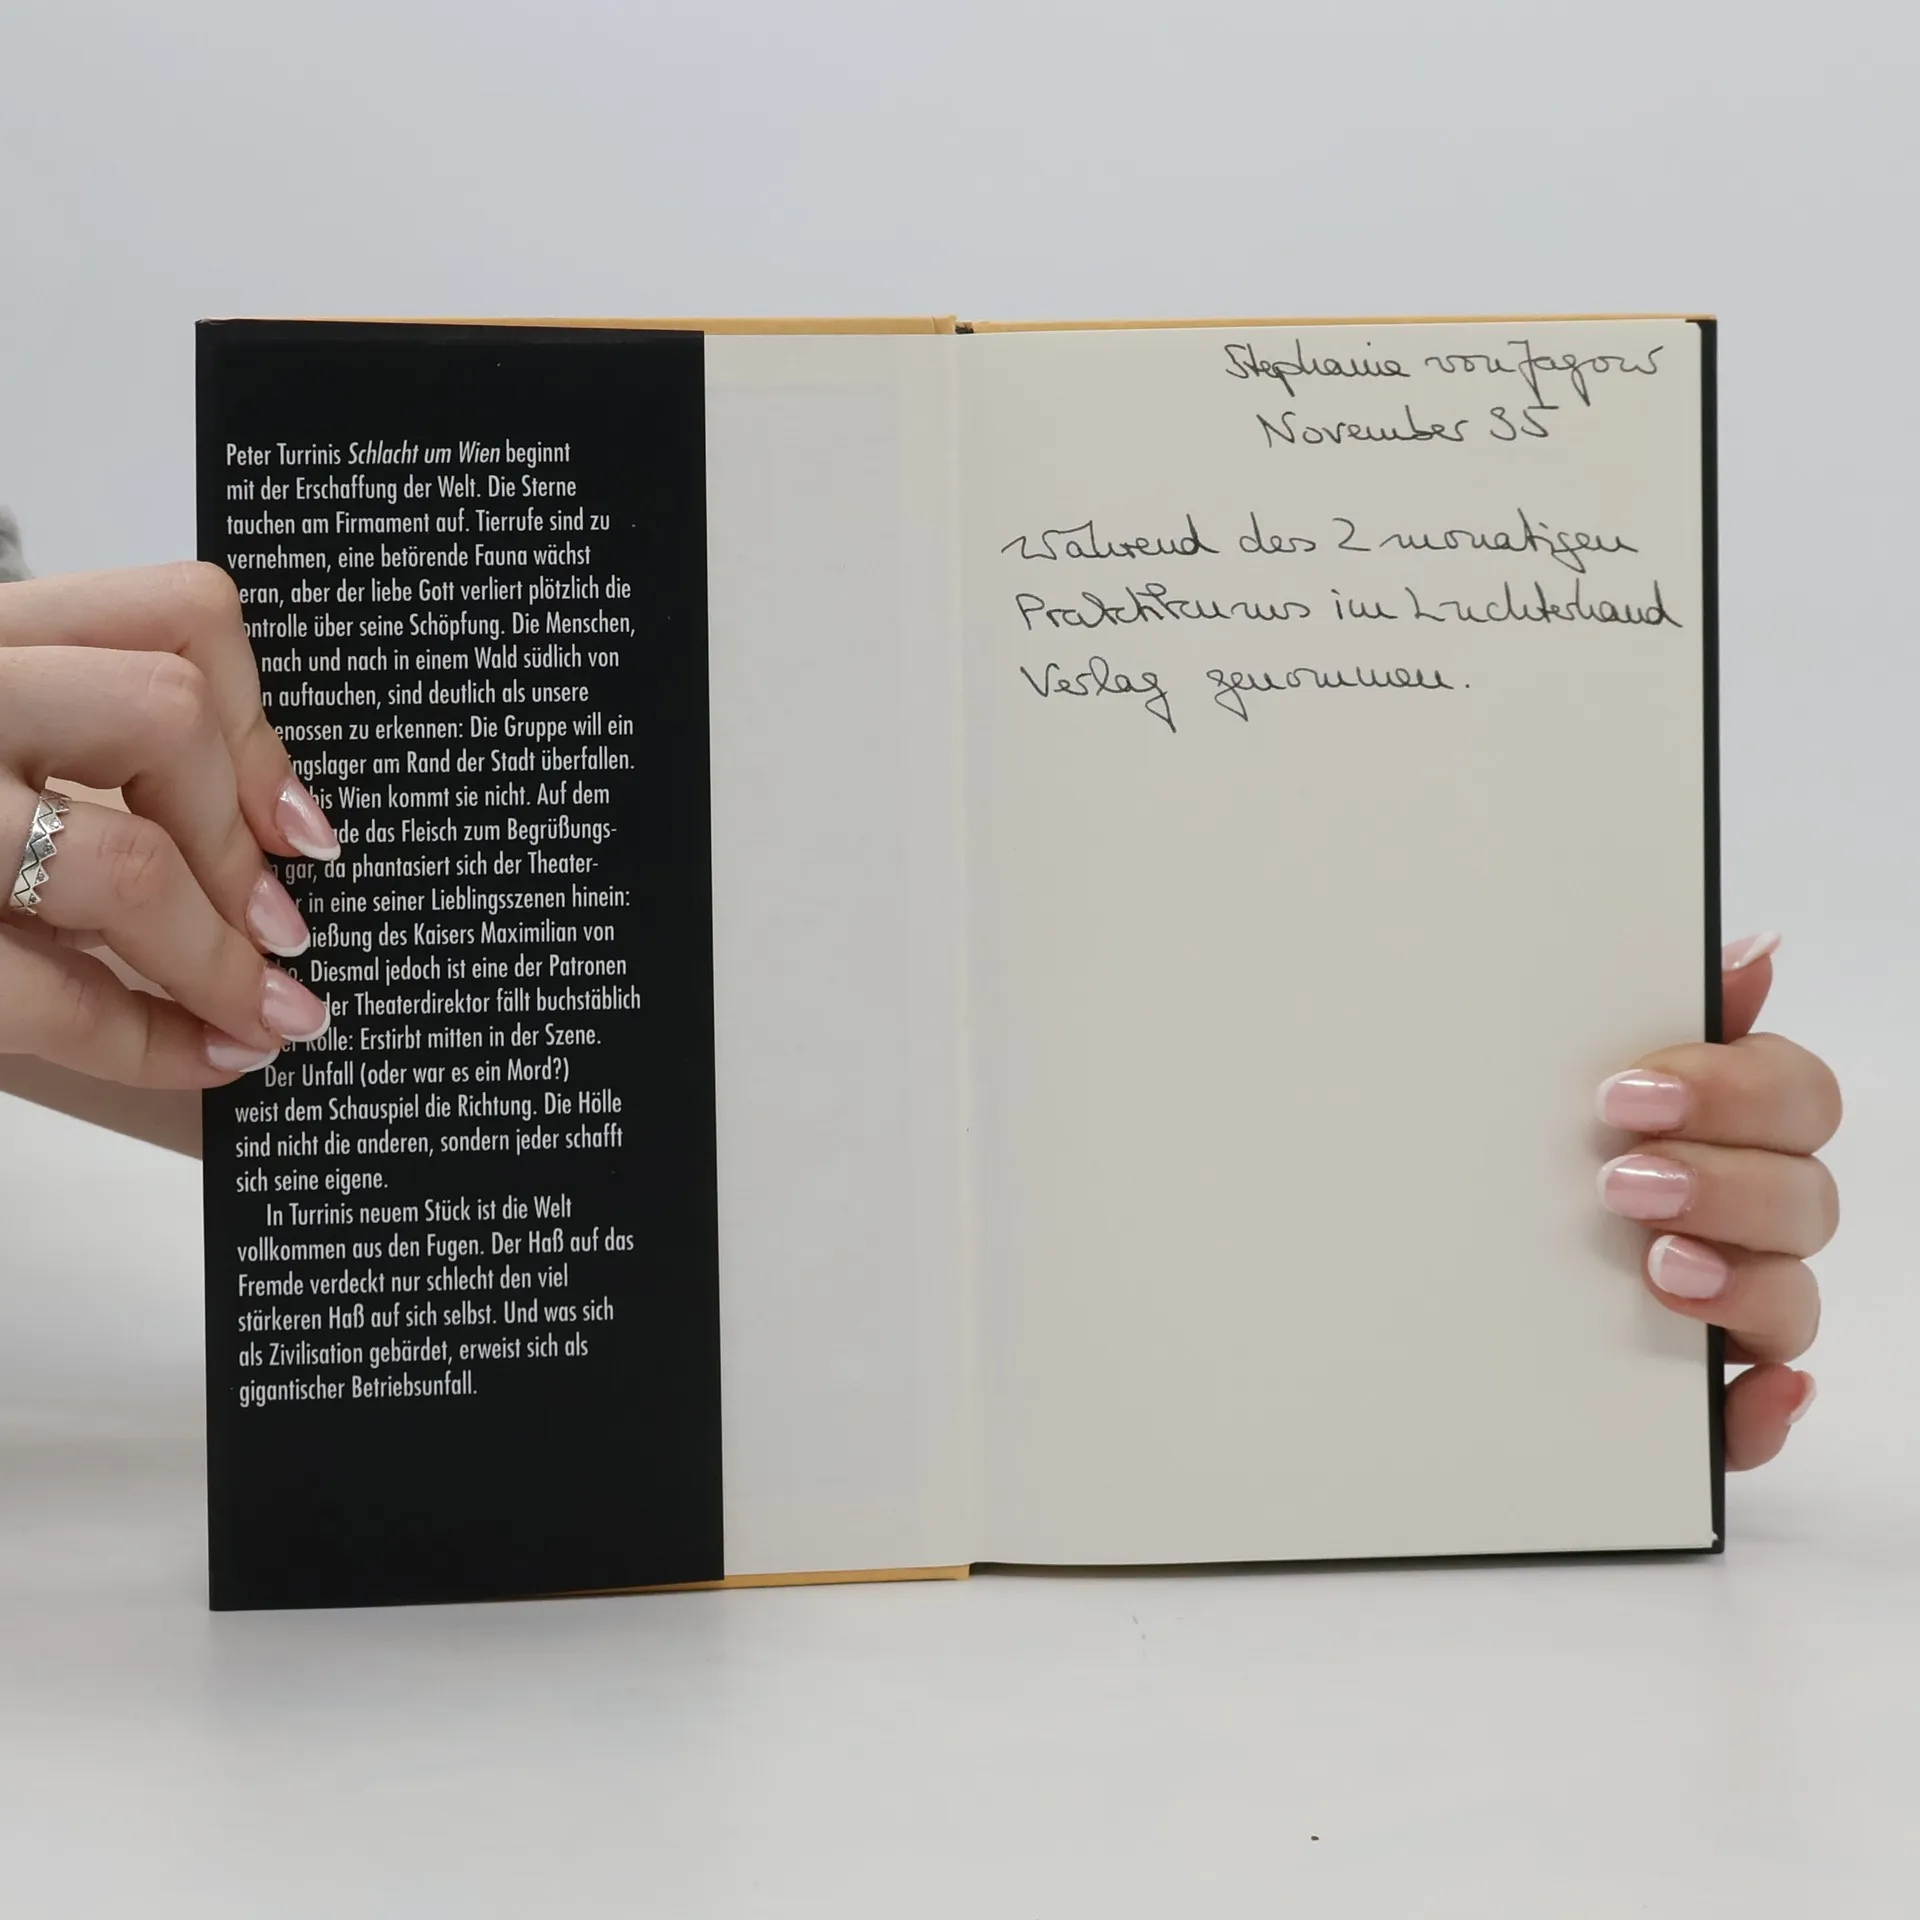 Peter Turrinis Schlacht um Wien beginnt
mit der Erschaffung der Welt. Die Sterne
tauchen am Firmament auf. Tierrufe sind zu
vernehmen, eine betörende Fauna wächst
eran, aber der liebe Gott verliert plötzlich die
ontrolle über seine Schöpfung. Die Menschen,
nach und nach in einem Wald südlich von
n auftauchen, sind deutlich als unsere
enossen zu erkennen: Die Gruppe will ein
ngslager am Rand der Stadt überfallen.
bis Wien kommt sie nicht. Auf dem
de das Fleisch zum Begrüßungs-
gar, da phantasiert sich der Theater-
r in eine seiner Lieblingsszenen hinein:
ießung des Kaisers Maximilian von
o. Diesmal jedoch ist eine der Patronen
der Theaterdirektor fällt buchstäblich
er Rolle: Erstirbt mitten in der Szene.
Der Unfall (oder war es ein Mord?)
weist dem Schauspiel die Richtung. Die Hölle
sind nicht die anderen, sondern jeder schafft
sich seine eigene.
In Turrinis neuem Stück ist die Welt
vollkommen aus den Fugen. Der Haß auf das
Fremde verdeckt nur schlecht den viel
stärkeren Haß auf sich selbst. Und was sich
als Zivilisation gebärdet, erweist sich als
gigantischer Betriebsunfall.
Stephanie von Jagow
November 95
während des 2 monatigen
Praktikums im Luchterhand
Verlag genommen.